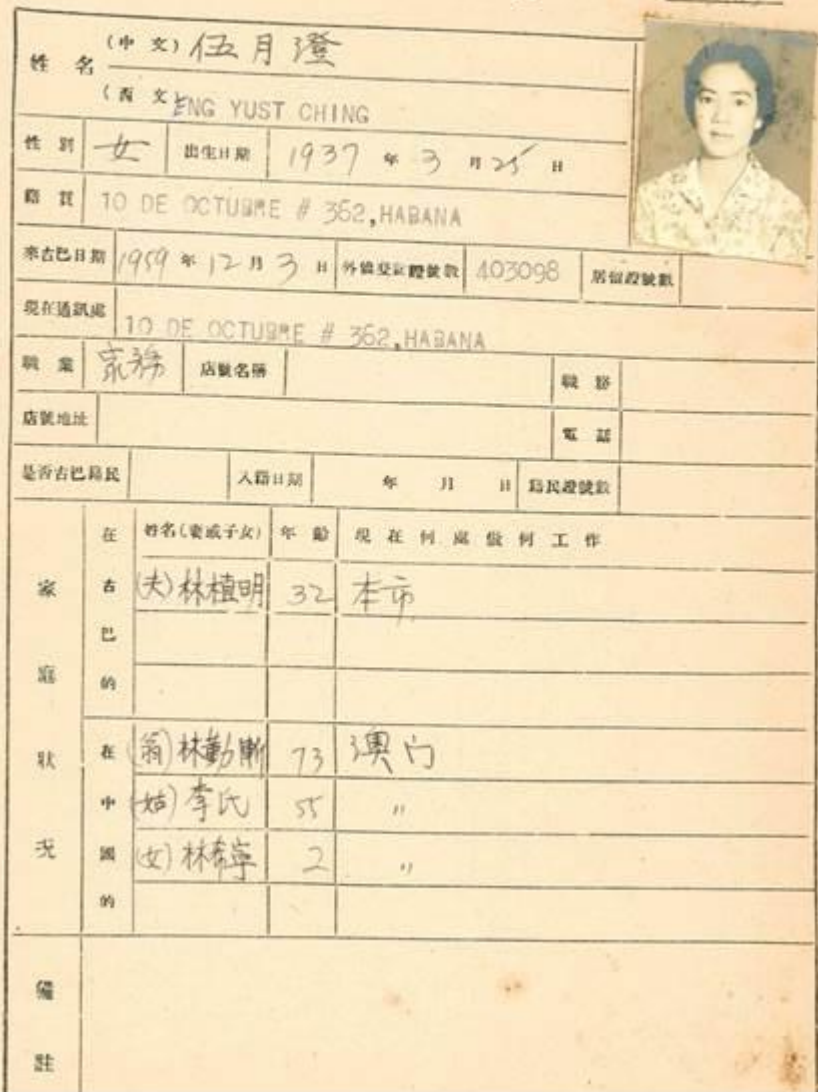 姓名 (中文) 伍月澄
(西文) ENG YUST CHING
性別 女 出生日期 1937 年 3 月 25 日
籍貫 10 DE OCTUBRE # 352, HABANA
來古巴日期 1959 年 12 月 3 日 外僑登記證號數 403098 居留證號數
現在通訊處 10 DE OCTUBRE # 352, HABANA
職業 家務 店號名稱 職務
店號地址 電話
是否古巴籍民 入籍日期 年 月 日 籍民證號數
家庭狀況
在古巴的 姓名(妻或子女) 年齡 現在何處做何工作
(夫)林植明 32 本市
在中國的
(翁)林勤漸 73 澳门
(姑)李氏 55 〃
(女)林希寧 2 〃
備註